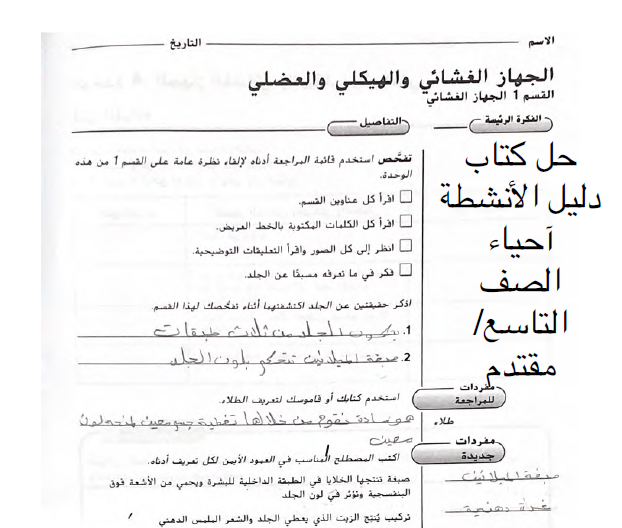 الاسم
التاريخ
الجهاز الغشائي والهيكلي والعضلي
القسم 1 الجهاز الغشائي
الفكرة الرئيسة
التفاصيل
تفحّص استخدم قائمة المراجعة أدناه لإلقاء نظرة عامة على القسم 1 من هذه
الوحدة.
اقرأ كل عناوين القسم.
اقرأ كل الكلمات المكتوبة بالخط العريض.
انظر إلى كل الصور واقرأ التعليقات التوضيحية.
فكر في ما تعرفه مسبقًا عن الجلد.
اذكر حقيقتين عن الجلد اكتشفتهما أثناء تفحّصك لهذا القسم.
1. يتكون الجلد من ثلاث طبقات
2. صبغة الميلانين تتحكم بلون الجلد
حل كتاب
دليل الأنشطة
أحياء
الصف
التاسع/
مقتدم
مفردات
للمراجعة
استخدم كتابك أو قاموسك لتعريف الطلاء.
طلاء
هو مادة نقوم من خلالها تغطية جسم معين لمنحه لون
معين
مفردات
جديدة
اكتب المصطلح المناسب في العمود الأيمن لكل تعريف أدناه.
صبغة الميلانين
صبغة تنتجها الخلايا في الطبقة الداخلية للبشرة ويحمي من الأشعة فوق
البنفسجية وتؤثر في لون الجلد
غدة دهنية
تركيب يُنتج الزيت الذي يعطي الجلد والشعر الملمس الدهني